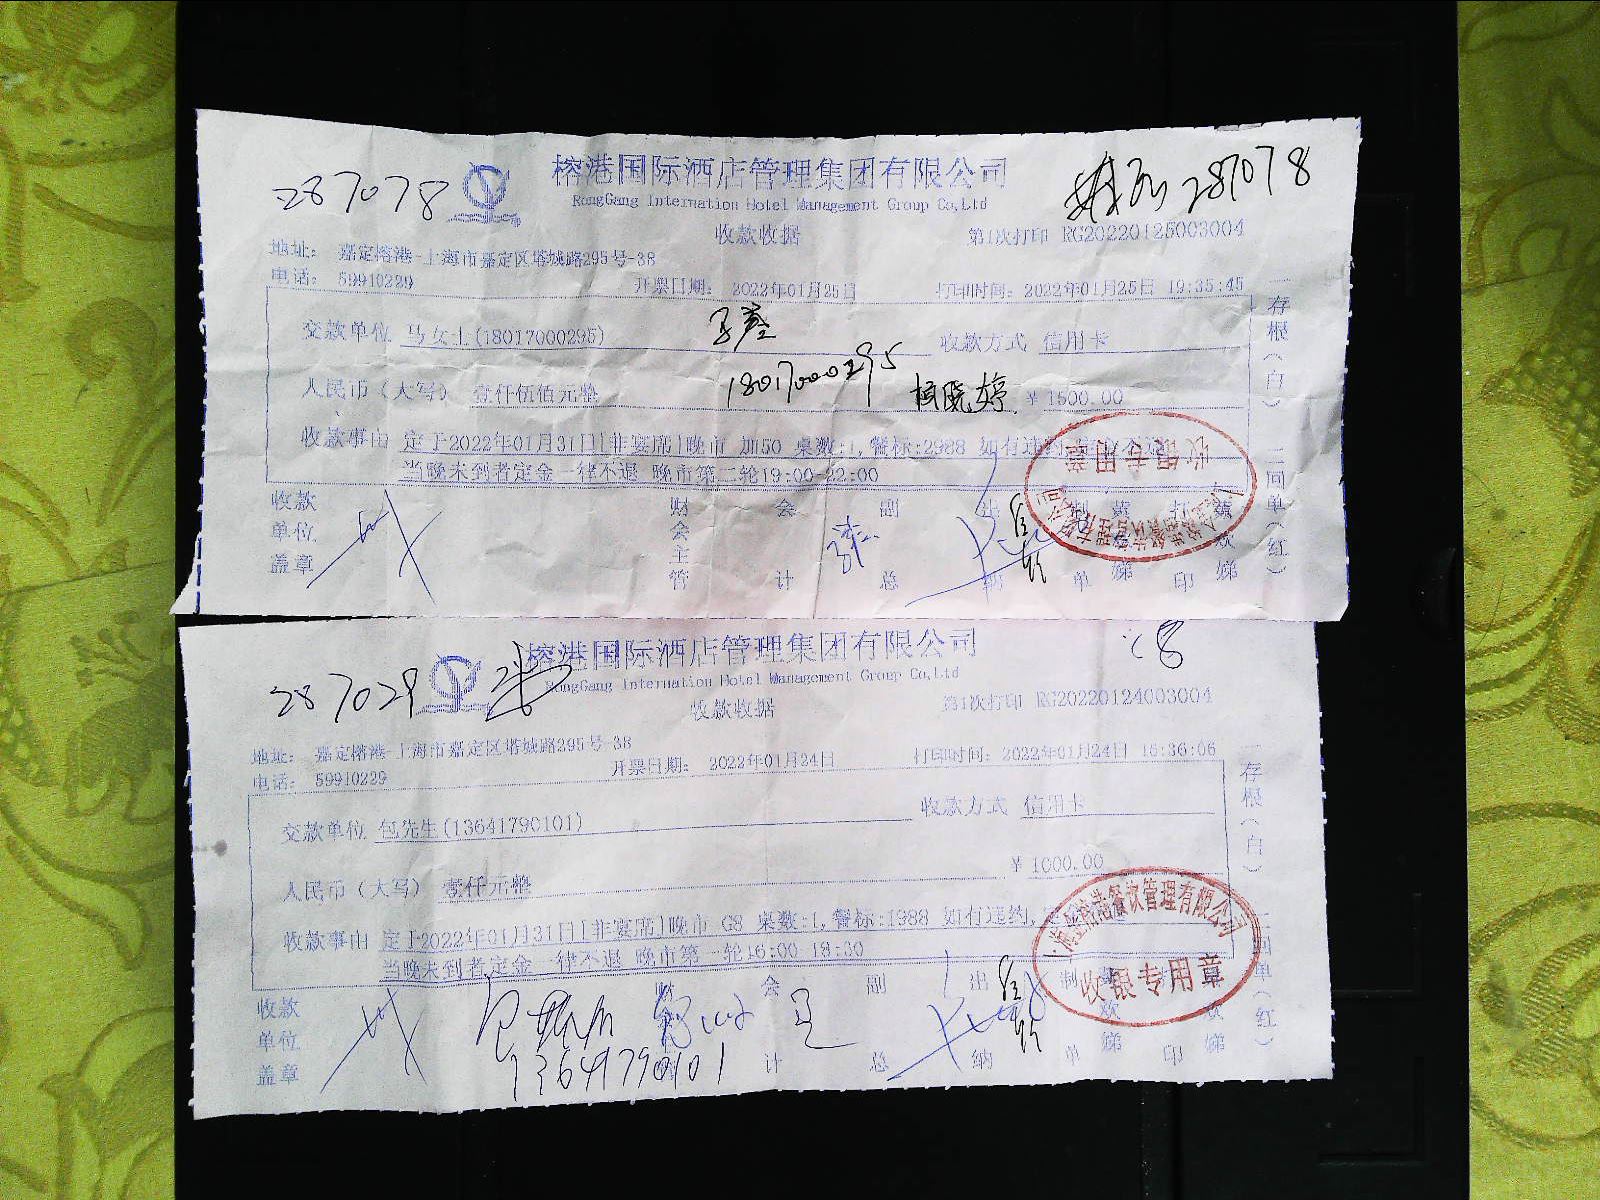 287078
榕港国际酒店管理集团有限公司
287078
RongGang Internation Hotel Management Group Co,Ltd
收款收据
第1次打印 RG20220125003004
地址: 嘉定榕港-上海市嘉定区塔城路295号-38
电话: 59910229
开票日期: 2022年01月25日
打印时间: 2022年01月25日 19:35:45
交款单位 马女士(18017000295)
收款方式 信用卡
人民币(大写) 壹仟伍佰元整
18017000295
杨晓婷
¥ 1500.00
收款事由 定于2022年01月31日[非宴席]晚市 加50 桌数:1,餐标:2988 如有违约,定金不退
当晚未到者定金一律不退 晚市第二轮19:00-22:00
收款单位盖章
财会主管
会计
副总
出纳
制单
黄欢娣
打印
黄欢娣
存根(白)
二回单(红)
收银专用章
287029
榕港国际酒店管理集团有限公司
28
RongGang Internation Hotel Management Group Co,Ltd
收款收据
第1次打印 RG20220124003004
地址: 嘉定榕港-上海市嘉定区塔城路295号-38
电话: 59910229
开票日期: 2022年01月24日
打印时间: 2022年01月24日 16:36:06
交款单位 包先生(13641790101)
收款方式 信用卡
人民币(大写) 壹仟元整
¥ 1000.00
收款事由 定于2022年01月31日[非宴席]晚市 G8 桌数:1,餐标:1988 如有违约,
当晚未到者定金一律不退 晚市第一轮16:00-18:30
收款单位盖章
会计
副总
出纳
制单
欢娣
印
欢娣
13641790101
存根(白)
二回单(红)
榕港餐饮管理有限公司
收银专用章